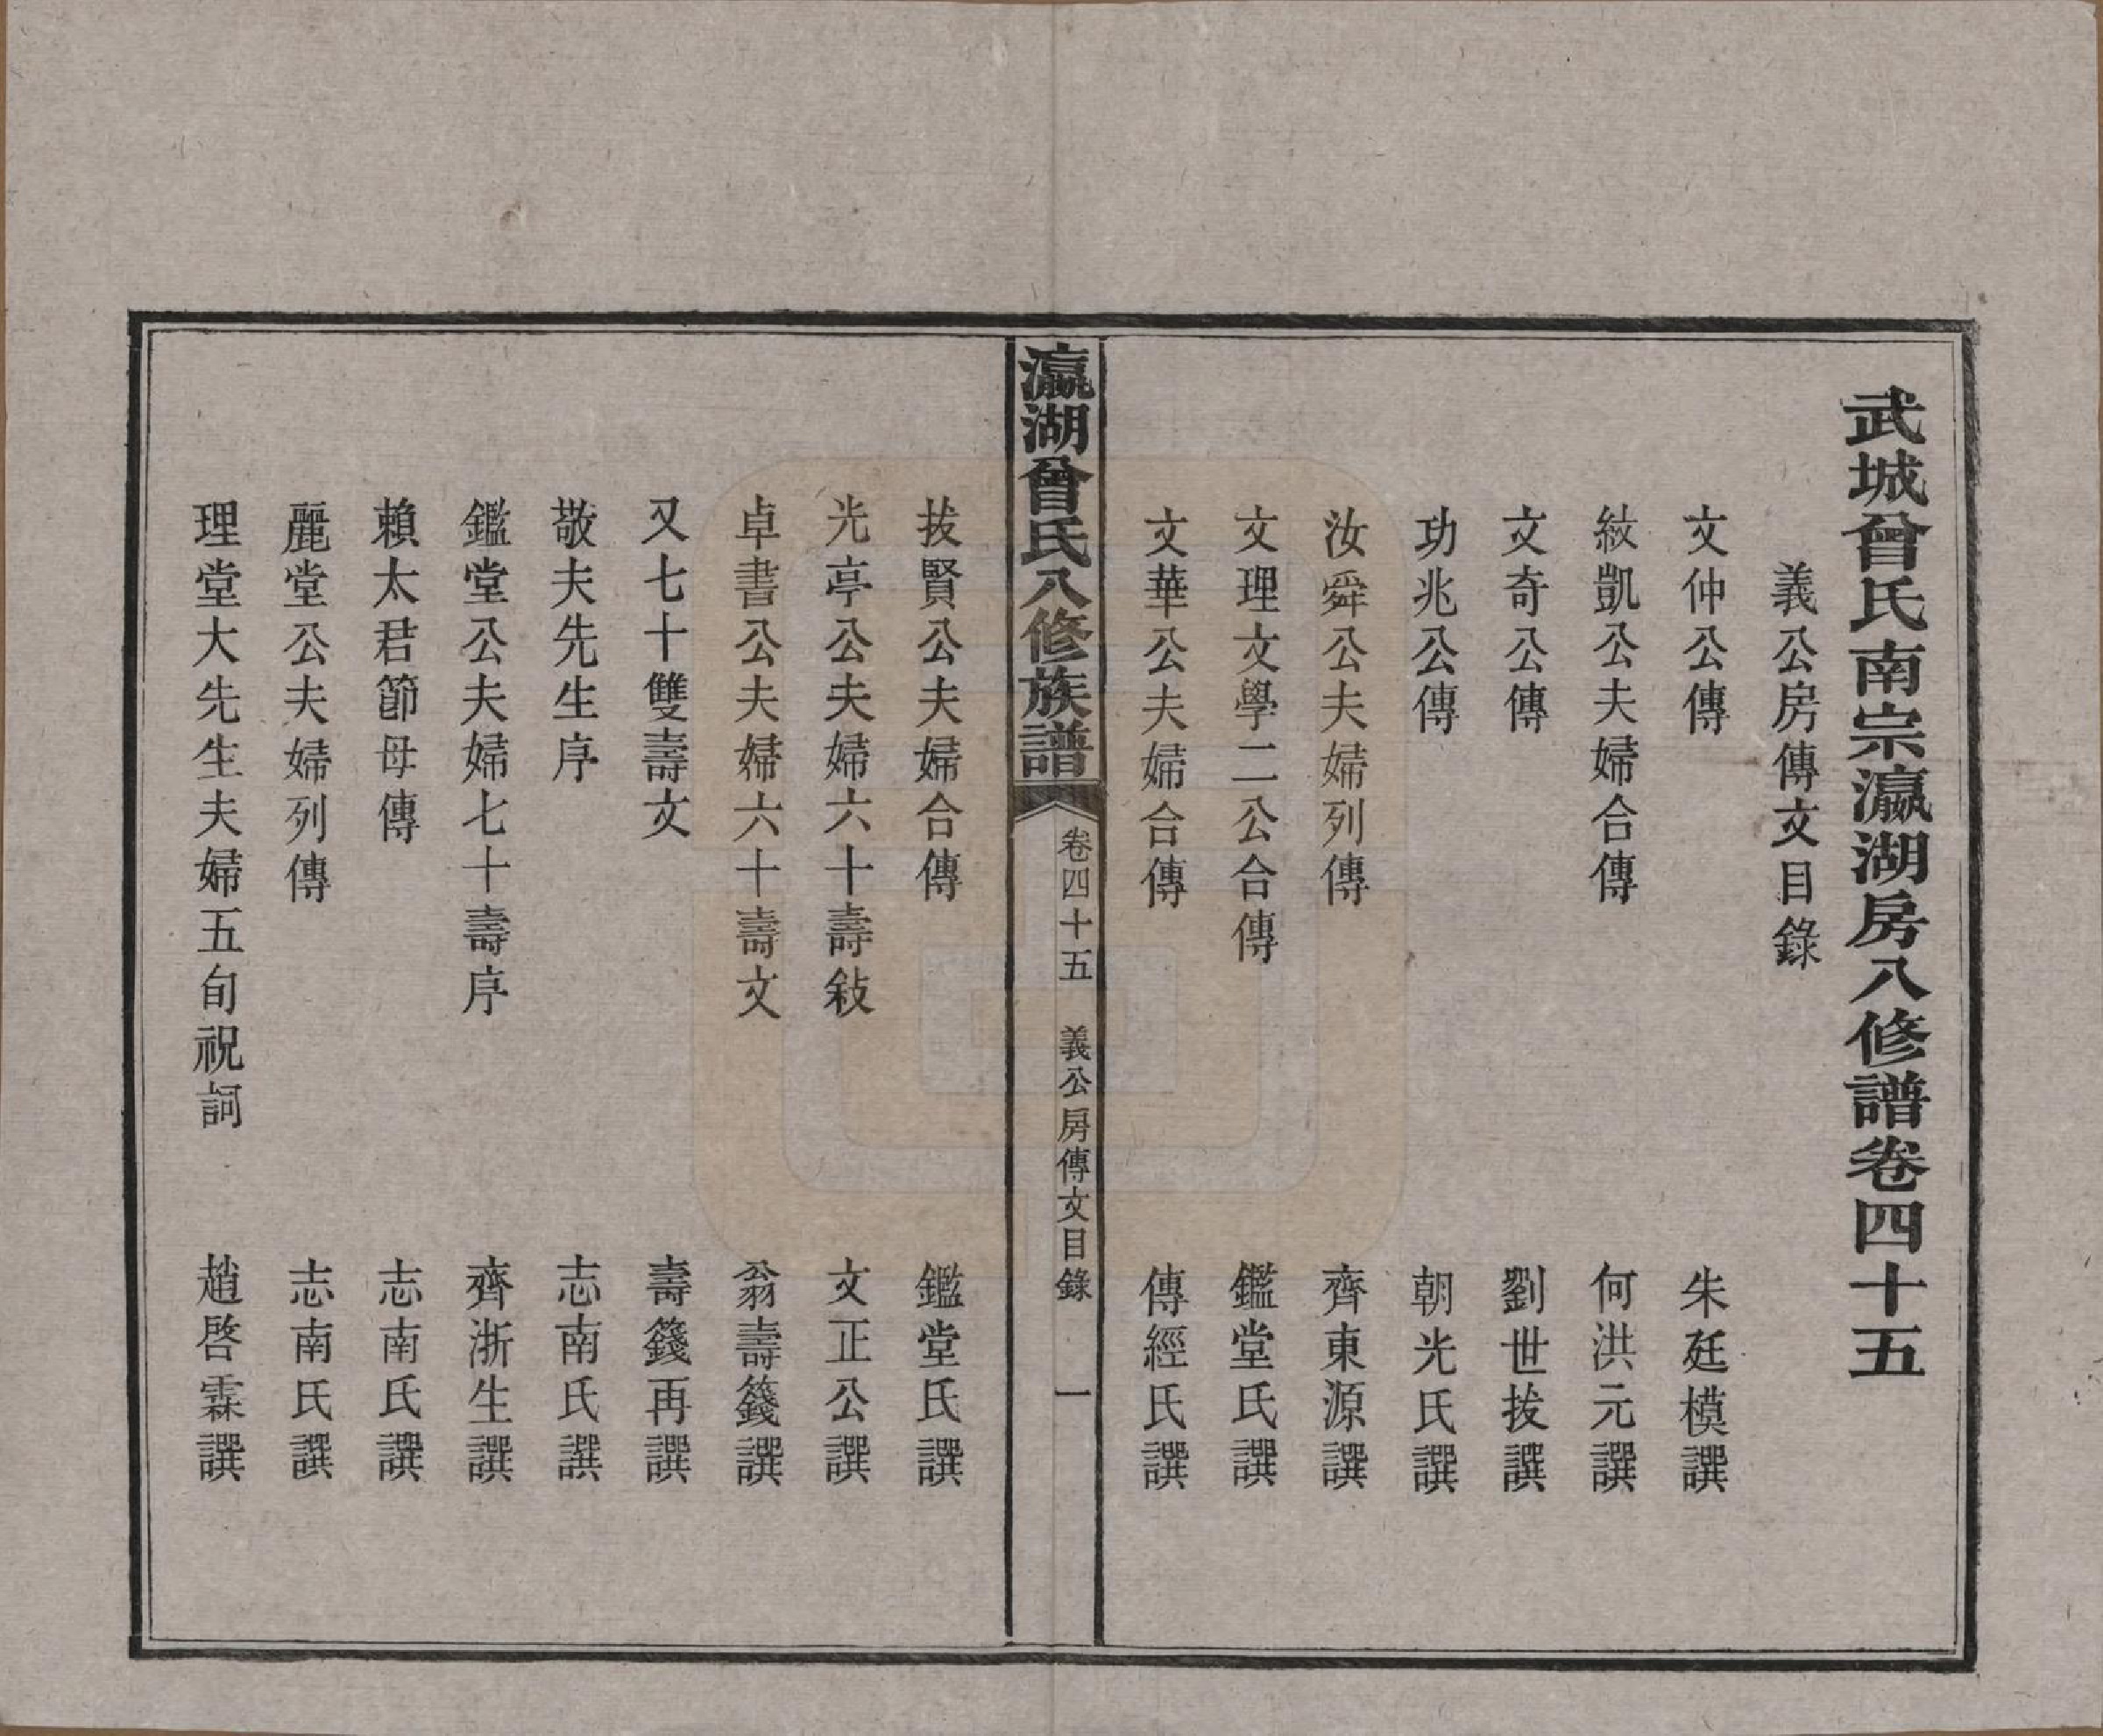 武城曾氏南宗瀛湖房八修譜卷四十五
義公房傳文目錄
文仲公傳　朱廷模譔
紋凱公夫婦合傳　何洪元譔
文奇公傳　劉世拔譔
功兆公傳　朝光氏譔
汝舜公夫婦列傳　齊東源譔
文理文學二公合傳　鑑堂氏譔
文華公夫婦合傳　傳經氏譔
瀛湖曾氏八修族譜　卷四十五　義公房傳文目錄　一
拔賢公夫婦合傳　鑑堂氏譔
光亭公夫婦六十壽敍　文正公譔
卓書公夫婦六十壽文　翁壽籛譔
又七十雙壽文　壽籛再譔
敬夫先生序　志南氏譔
鑑堂公夫婦七十壽序　齊浙生譔
賴太君節母傳　志南氏譔
麗堂公夫婦列傳　志南氏譔
理堂大先生夫婦五旬祝詞　趙啓霖譔